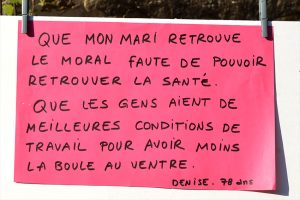 QUE MON MARI RETROUVE
LE MORAL FAUTE DE POUVOIR
RETROUVER LA SANTÉ.
QUE LES GENS AIENT DE
MEILLEURES CONDITIONS DE
TRAVAIL POUR AVOIR MOINS
LA BOULE AU VENTRE.
DENISE. 78 ans